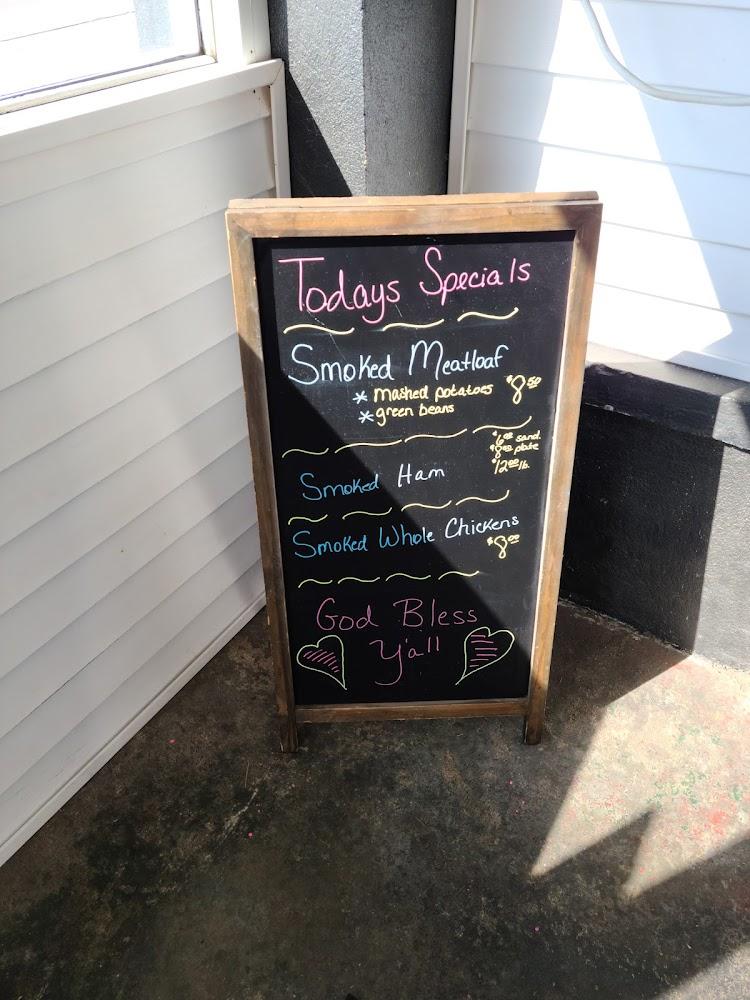 Todays Specials
Smoked Meatloaf
* mashed potatoes $8.50
* green beans
$6.00 sand.
$8.00 plate
$12.00 lb.
Smoked Ham
Smoked Whole Chickens
$8.00
God Bless
Y'all